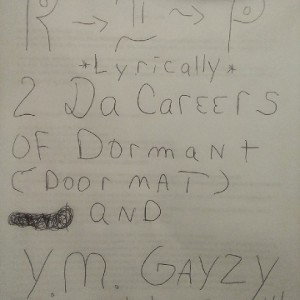 R → π → P
*Lyrically*
2 Da Careers
OF Dormant
(DOOR MAT)
AND
Y.M. GAYZY